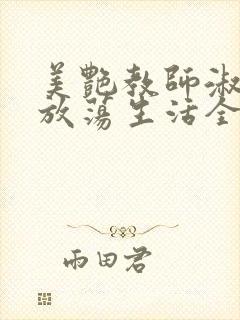 美艷教師淑
放蕩生活全
雨田君